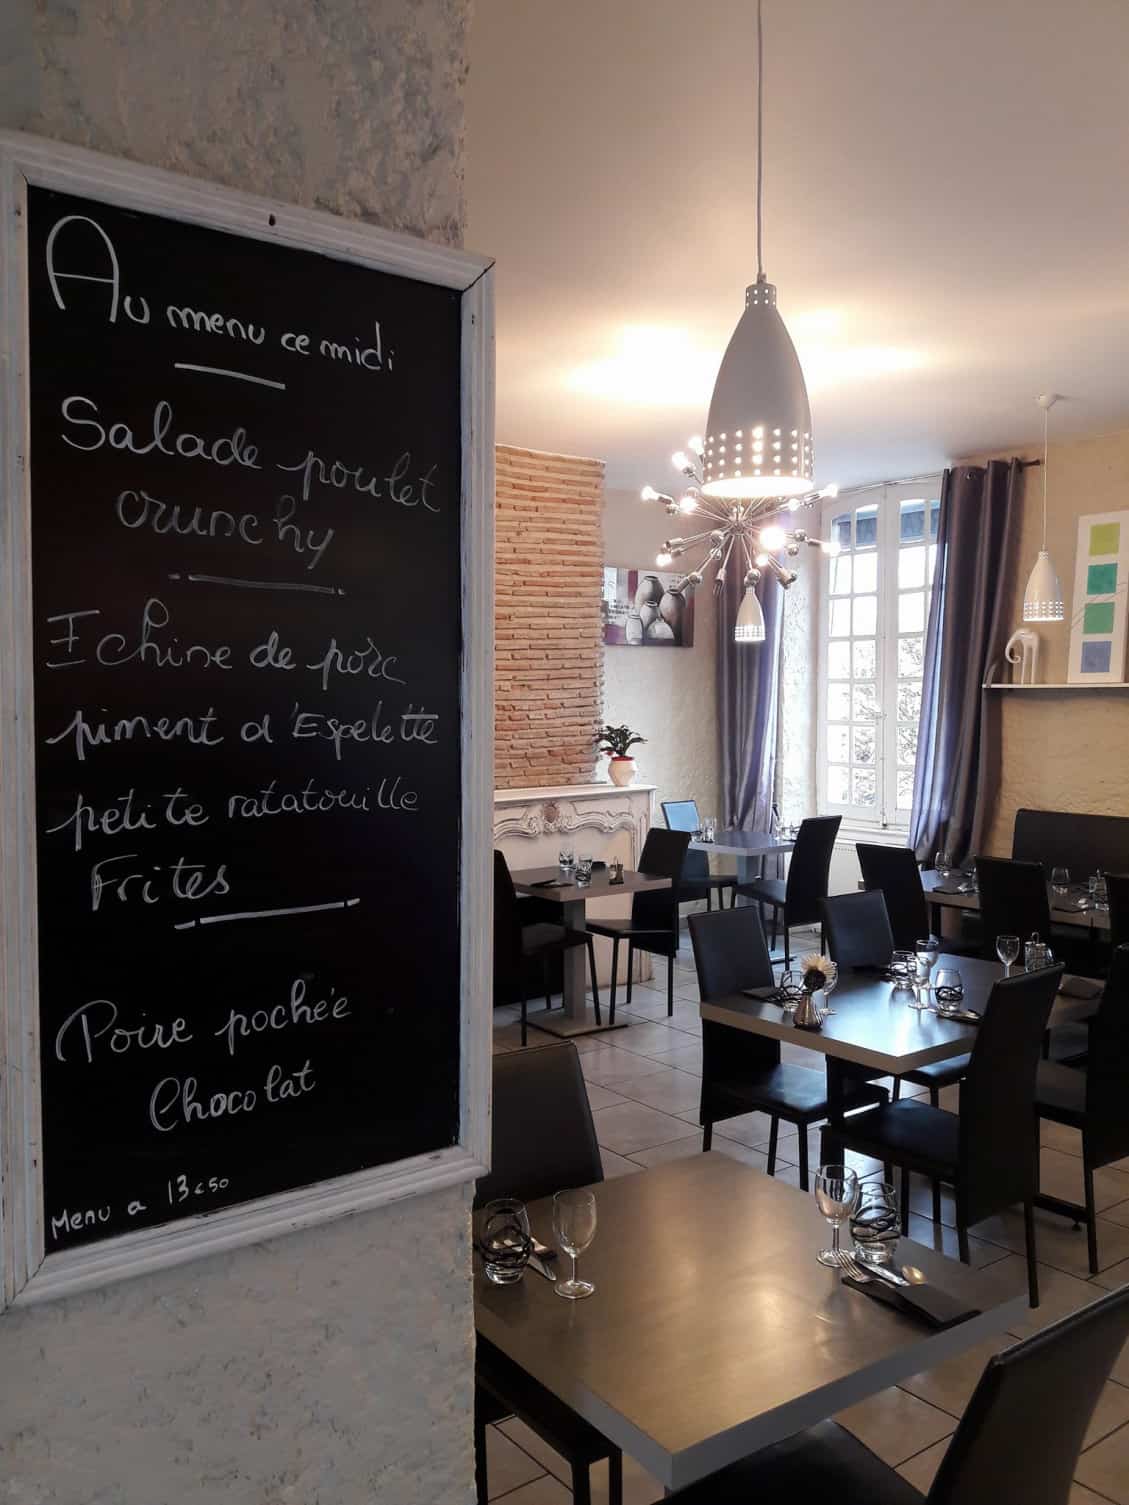 Au menu ce midi
Salade poulet
crunchy
Echine de porc
piment d'Espelette
petite ratatouille
Frites
Poire pochée
Chocolat
Menu a 13€50